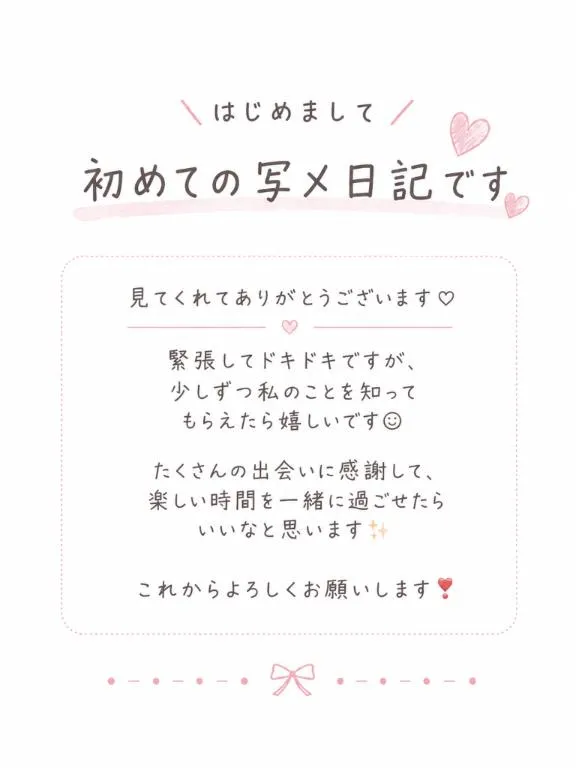 はじめまして
初めての写メ日記です
見てくれてありがとうございます♡
緊張してドキドキですが、
少しずつ私のことを知って
もらえたら嬉しいです☺
たくさんの出会いに感謝して、
楽しい時間を一緒に過ごせたら
いいなと思います✨
これからよろしくお願いします❣